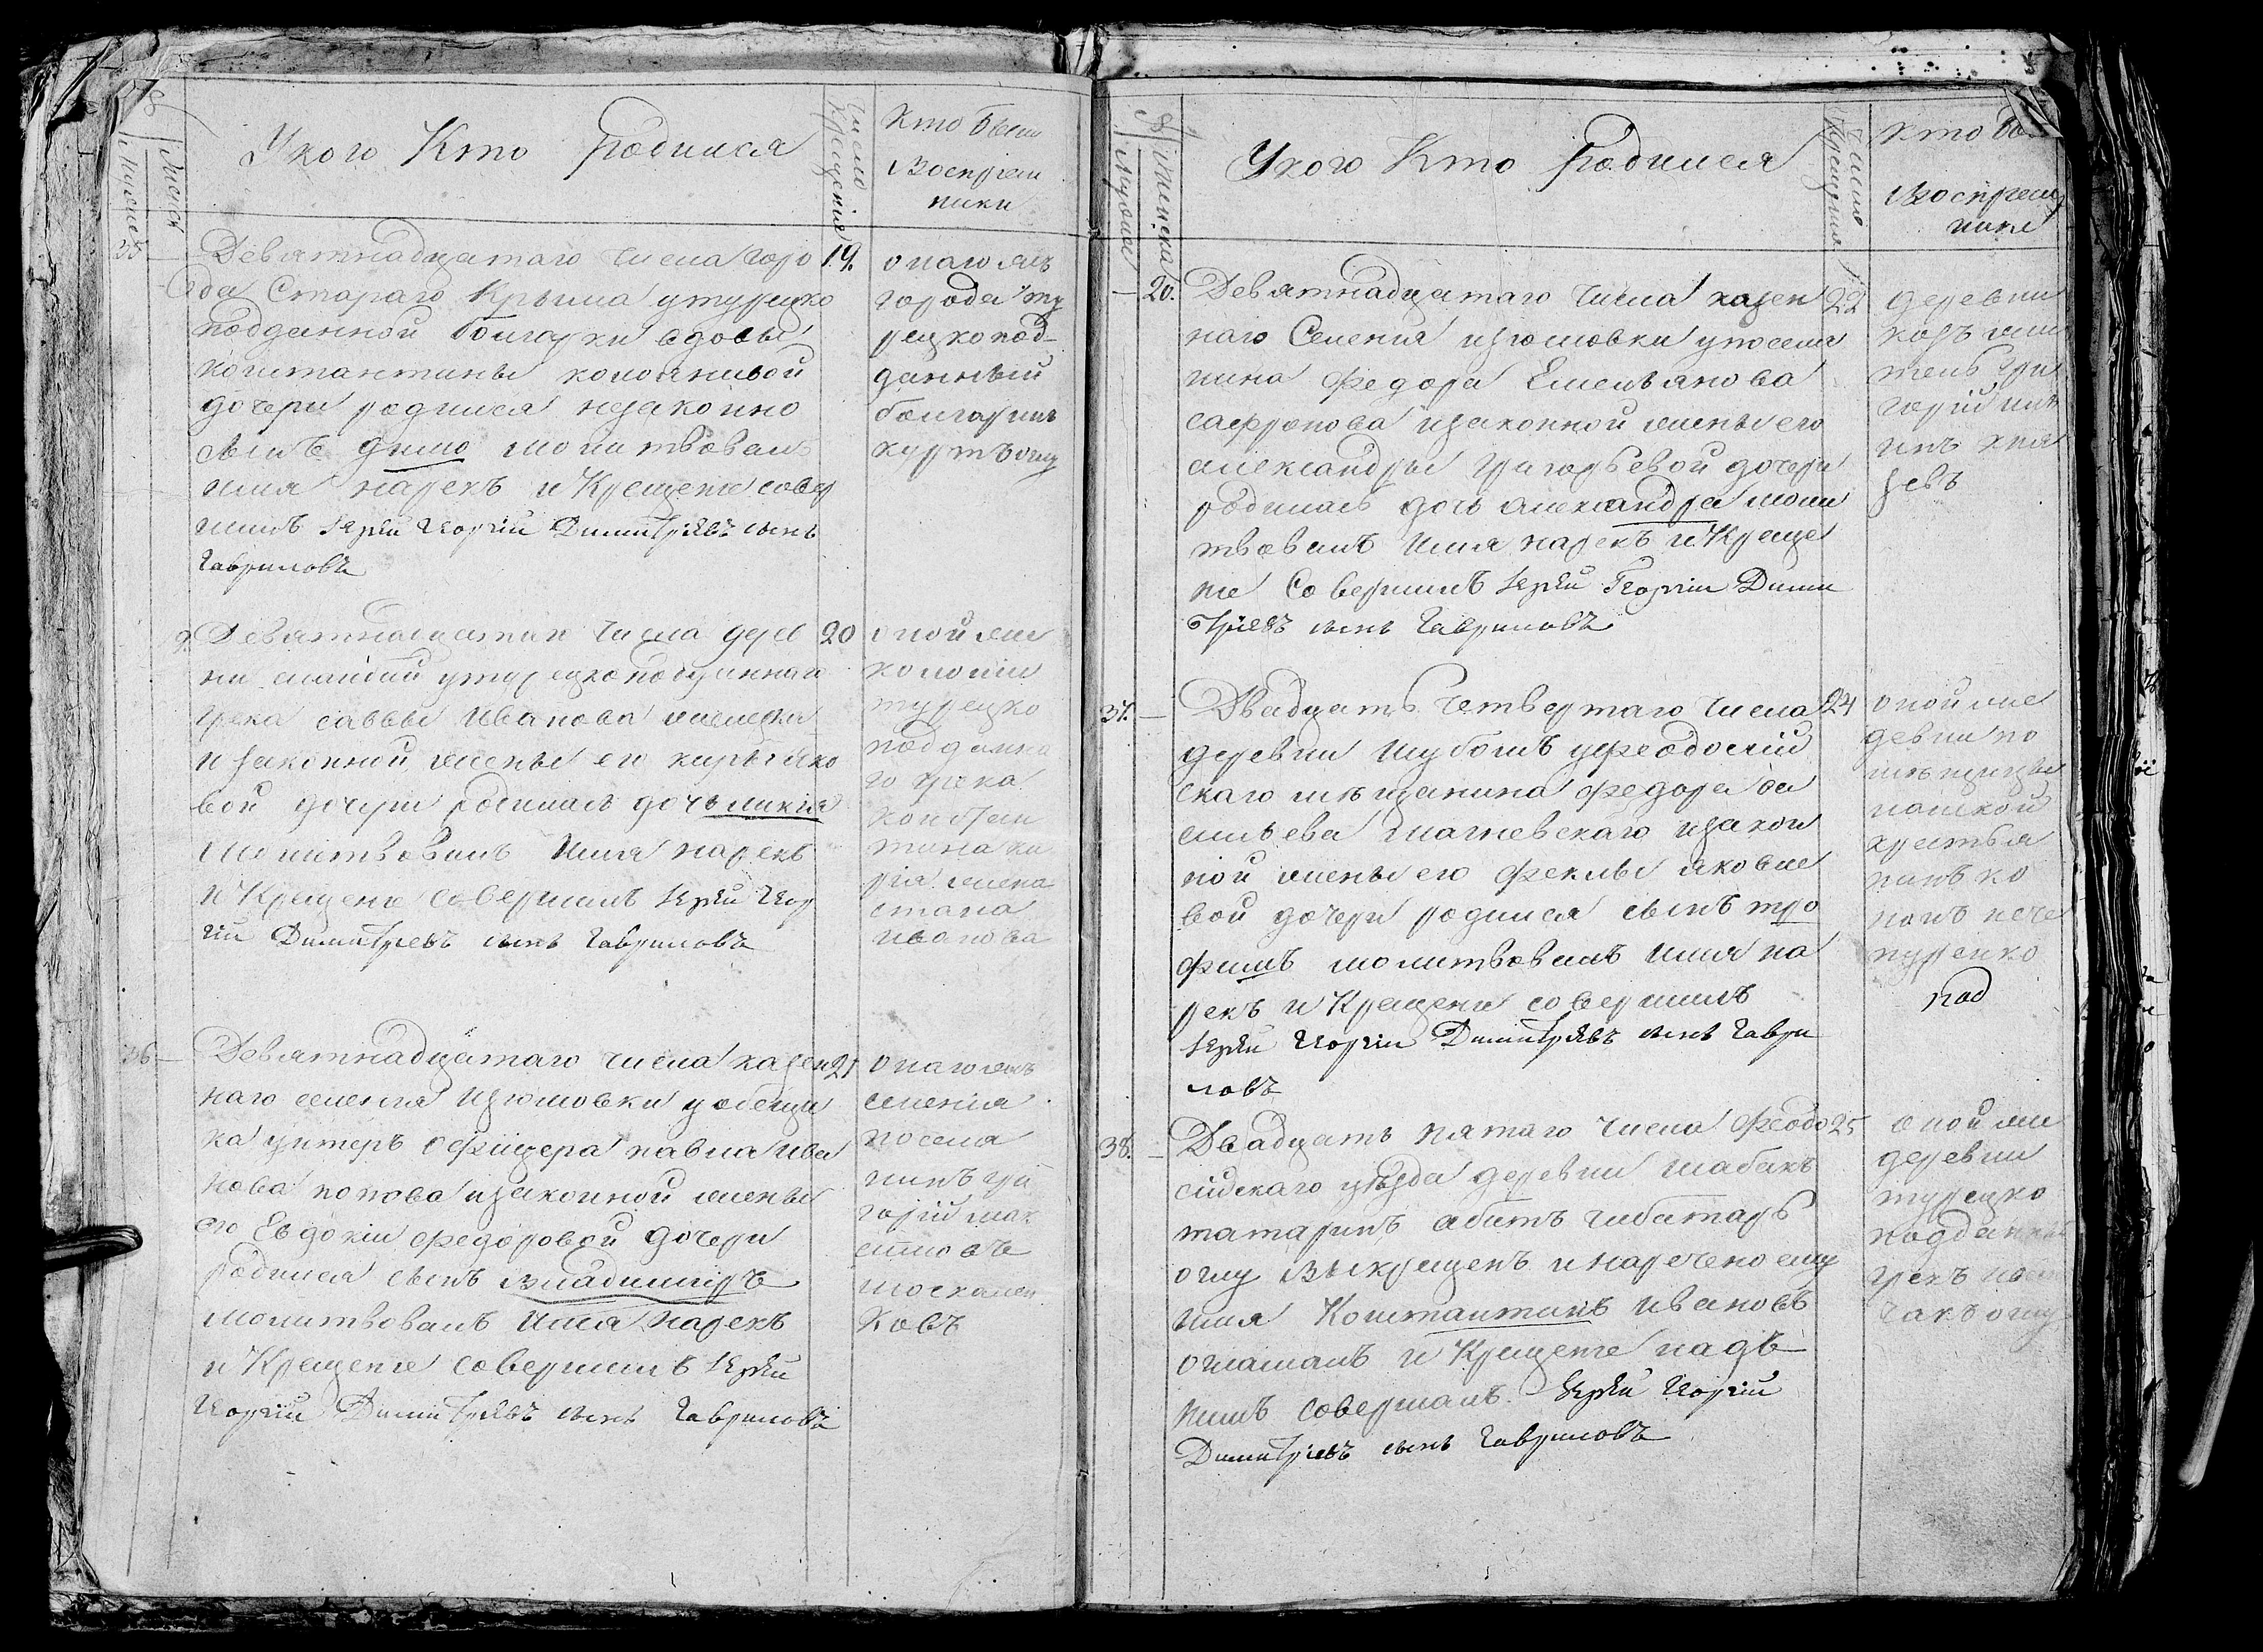 У кого Кто родился
Число Крещения
Кто были
Воспрiем
ники
35
Девятнадцатаго числа горо
да Стараго Крыма у турецко
подданной болгарки вдовы
дочери родился незаконно
сынъ димо молитвовалъ
имя нарекъ и Крещенiе совер
шилъ Iерей Георгiй Димитрiевъ сынъ
Гавриловъ
19.
онаго жъ
города ту
рецкопод-
данный
болгаринъ
9.
Девятнадцатаго числа дерев
ни у турецкоподданнаго
грека саввы Иванова
и законной жены его
вой дочери родилась дочь
Молитвовалъ Имя нарекъ
и Крещенiе совершилъ Iерей Геор
гiй Димитрiевъ сынъ Гавриловъ
20
оной же
колонiи
турецко
поддання
го грека
жена
Иванова
36
Девятнадцатаго числа казен
наго селенiя Изюмовки у объещи
ка унтеръ офицера павла Ива
нова попова и законной жены
его Евдокiи Федоровой дочери
родился сынъ владимиръ
молитвовалъ Имя нарекъ
и Крещенiе совершилъ Iерей
Георгiй Димитрiевъ сынъ Гавриловъ
21
онаго жъ
селенiя
поселя
нинъ гри
горiй мак
симовъ
москален
ковъ
У кого Кто родился
Число Крещения
Кто бы
Воспрiем
ники
20.
Девятнадцатаго числа казен
наго Селенiя изюмовки у поселя
нина Федора Емельянова
сафронова и законной жены его
александры григорьевой дочери
родилась дочь александра моли
твовалъ Имя нарекъ и Креще
нiе Совершилъ Iерей Георгiй Дими
трiевъ сынъ Гавриловъ
22
деревни
гри
горiй
кня
зевъ
37.
Двадцать четвертаго числа
деревни Шубошъ у феодосiй
скаго мещанина Федора ва
сильева и закон
ной жены его Феклы яковле
вой дочери родился сынъ тро
фимъ молитвовалъ имя на
рекъ и Крещенiе совершилъ
Iерей Георгiй Димитрiевъ сынъ Гаври
ловъ
24
оной же
девни по
мъщицы
крестья
нинъ ко
нонъ нече
пуренко
38.
Двадцать пятаго числа Феодо
сiйскаго уъзда деревни шабакъ
татаринъ абитъ чибатаръ
оглу выкрещенъ и наречено ему
имя Контантинъ Ивановъ
огласилъ и Крещенiе надъ
нимъ совершилъ. Iерей Георгiй
Димитрiевъ сынъ Гавриловъ
25
оной же
деревни
турецко
подданный
грекъ